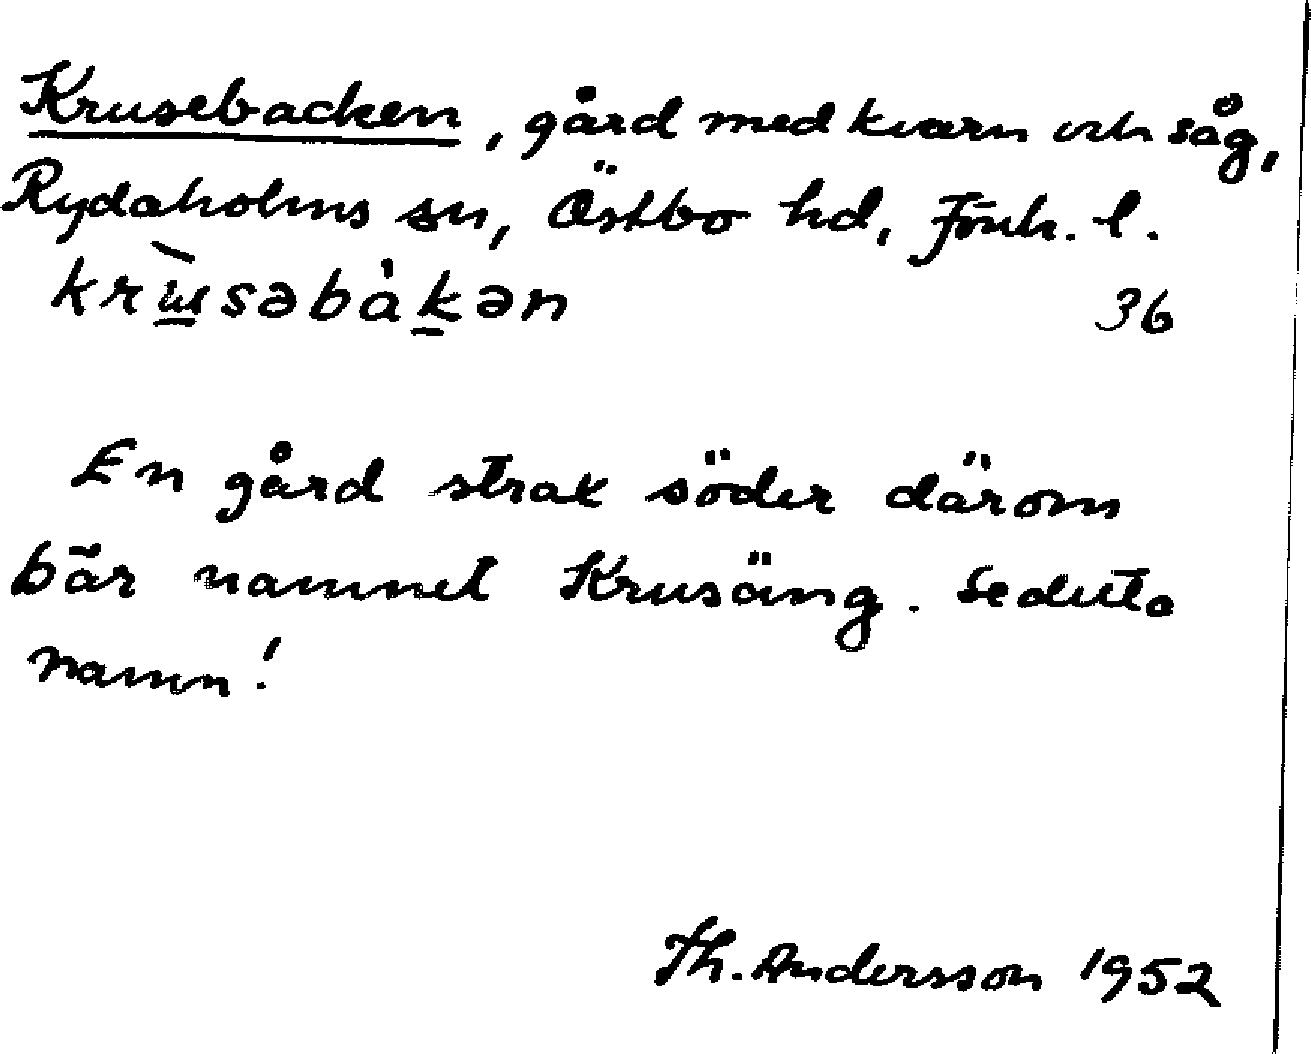 Krusebacken, gård med kvarn och såg,
Rydaholms sn, Östbo hd, Jönk. l.
krɯ̀səbàkən 36
En gård strax söder därom
bär namnet Krusäng. Se detta
namn!
Th. Andersson 1952